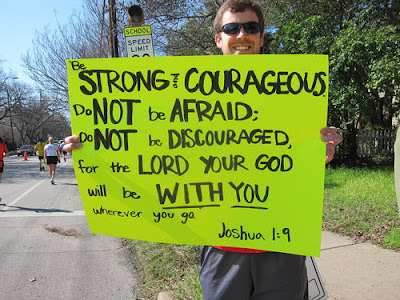 SCHOOL
SPEED
LIMIT
Be
STRONG and COURAGEOUS.
Do NOT be AFRAID;
Do NOT be DISCOURAGED,
for the LORD YOUR GOD
will be WITH YOU
wherever you go
Joshua 1:9